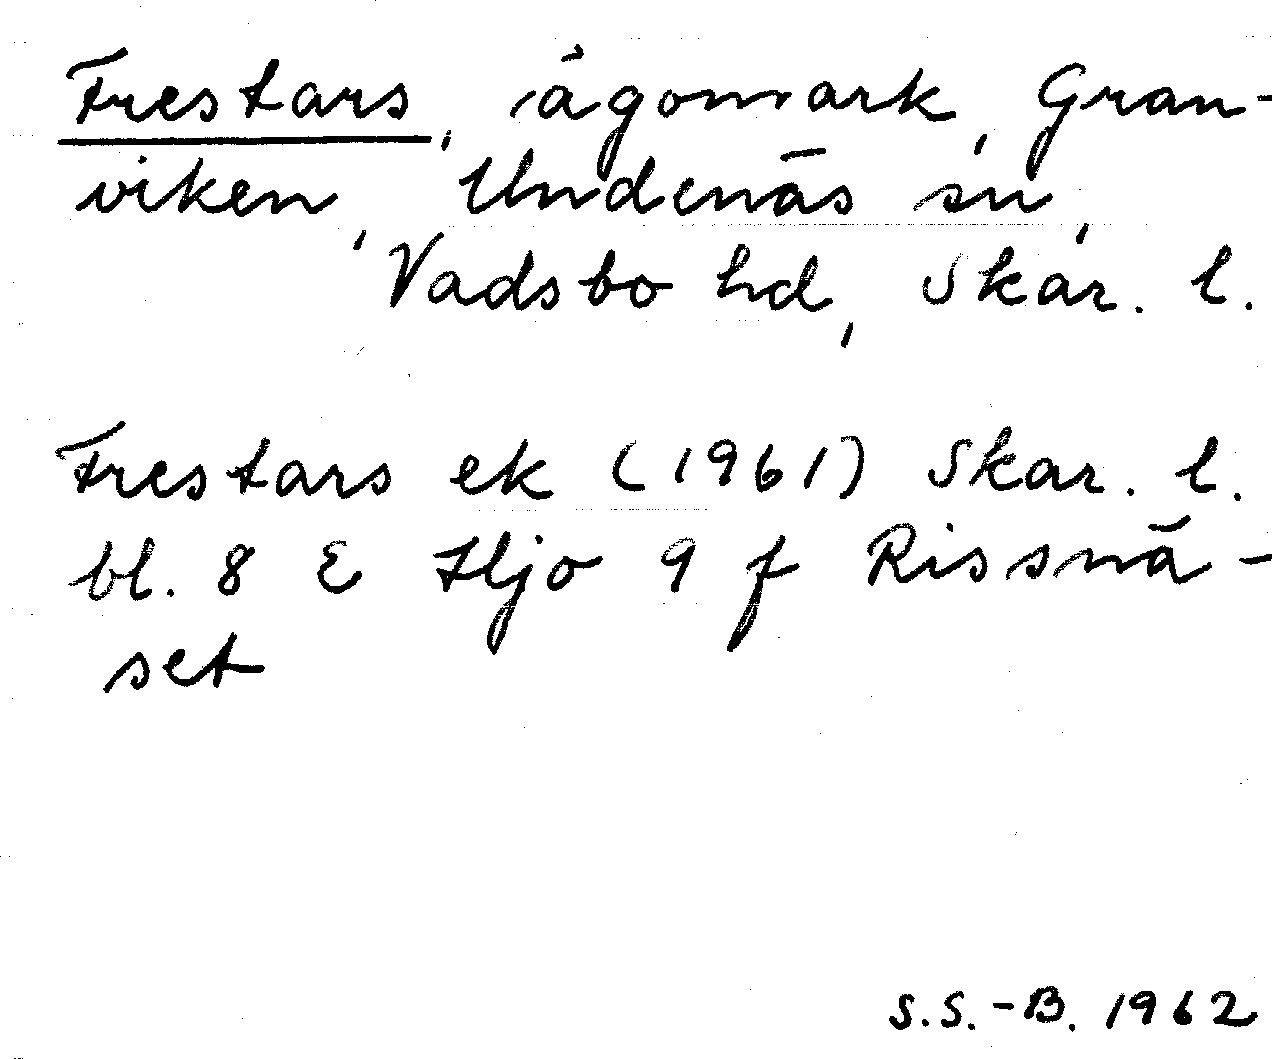 Frestars, ägomark, Gran-
viken, Undenäs sn,
Vadsbo hd, Skar. l.
Frestars ek (1961) Skar. l.
bl. 8 E Hjo 9 f Rissnä-
set
S.S.-B. 1962